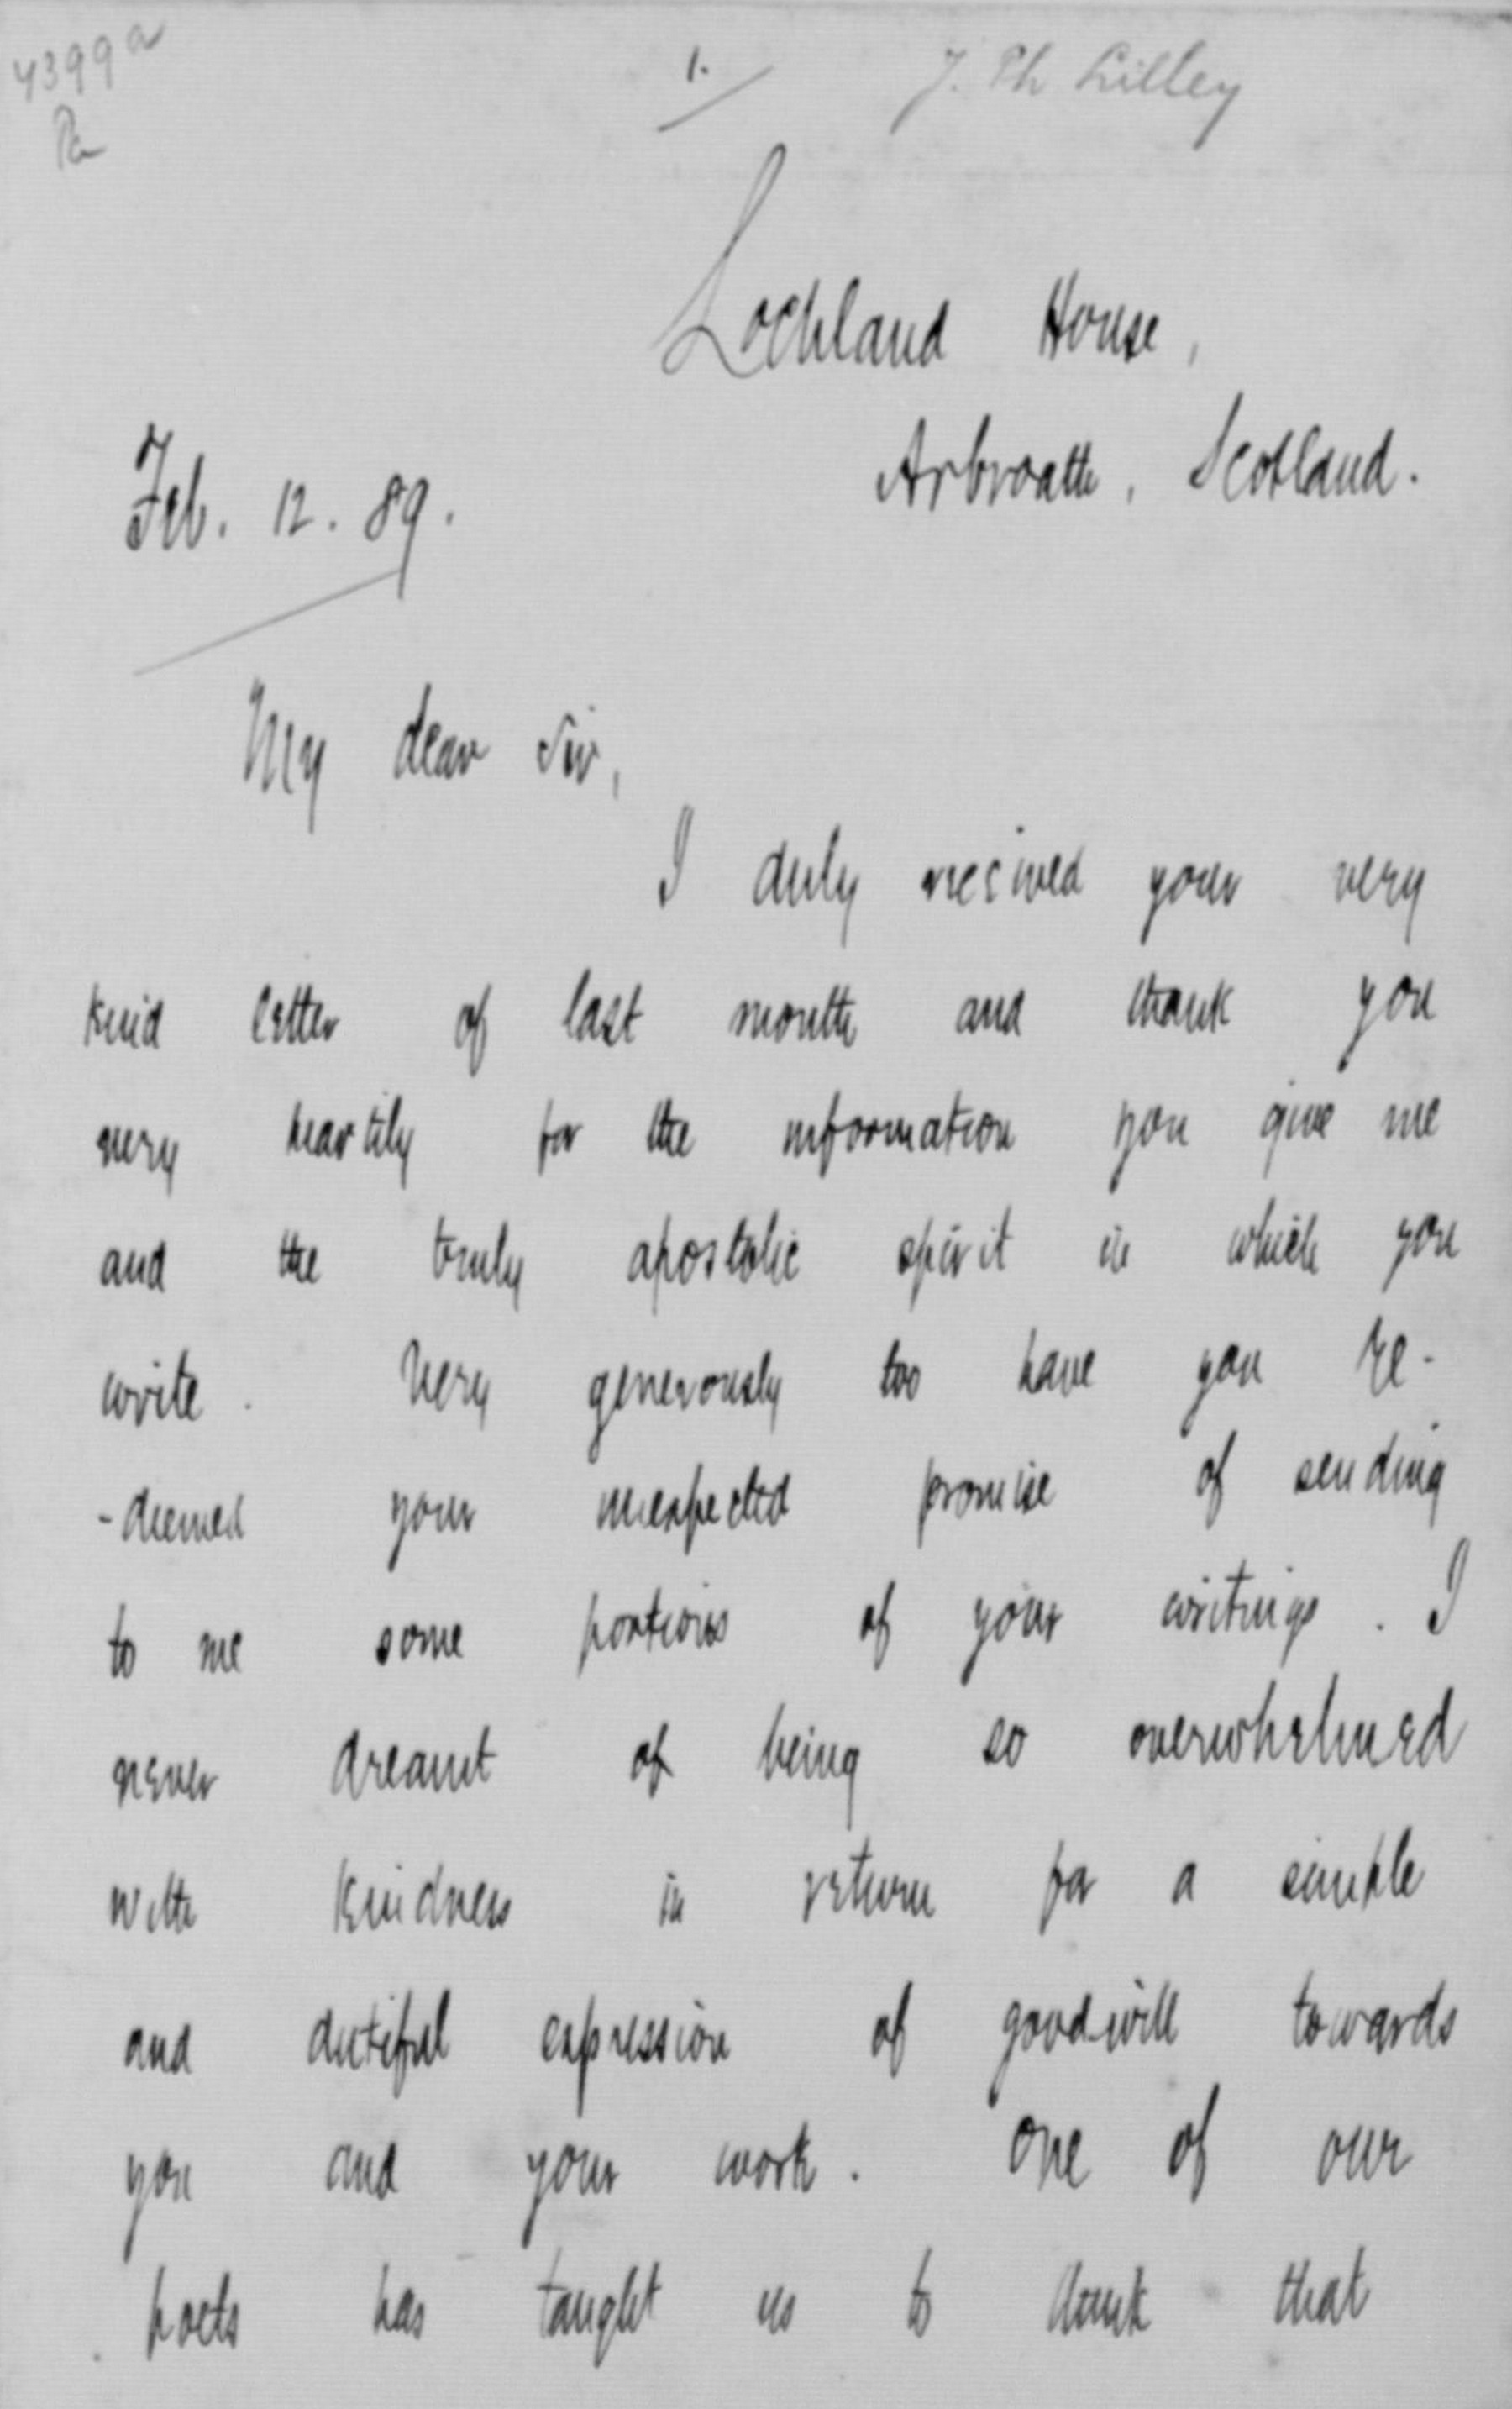 4399a
1.
J. Ph Lilley
Lochland House,
Arbroath, Scotland.
Feb. 12. 89.
My dear Sir,
I duly received your very
kind letter of last month and thank you
very heartily for the information you give me
and the truly apostolic spirit in which you
write. Very generously too have you re-
-deemed your unexpected promise of sending
to me some portions of your writings. I
never dreamt of being so overwhelmed
with kindness in return for a simple
and dutiful expression of goodwill towards
you and your work. One of our
poets has taught us to think that